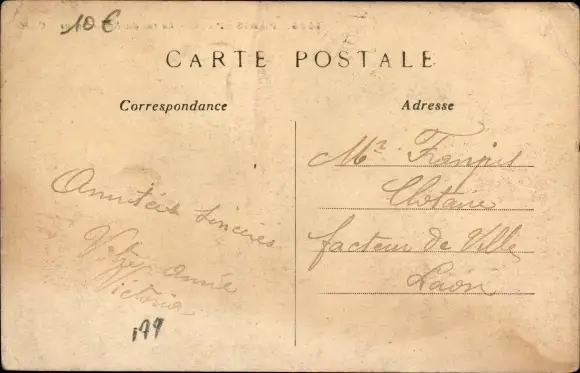 10 €
CARTE POSTALE
Correspondance
Adresse
Amitiés Sincères
Votre amie
Victoria
Mr. François
Clotaire
facteur de Ville
Laon